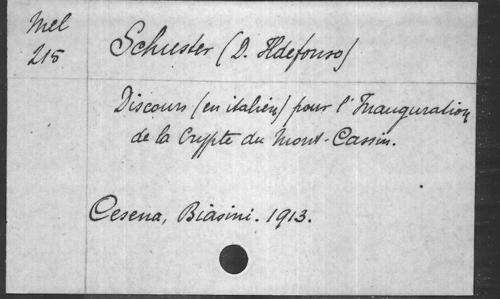 Mel
215
Schuster (D. Ildefonso)
Discours (en italien) pour l'Inauguration
de la Crypte du Mont-Cassin.
Cesena, Biasini. 1913.